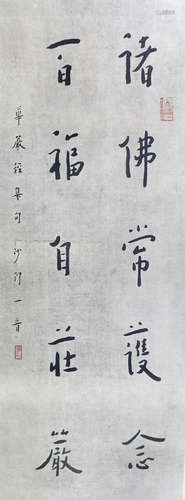 諸佛常護念
一百福自莊嚴
華嚴經集句 沙門一音